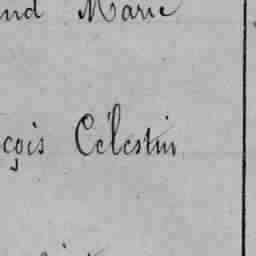 nd Marie
çois Célestin